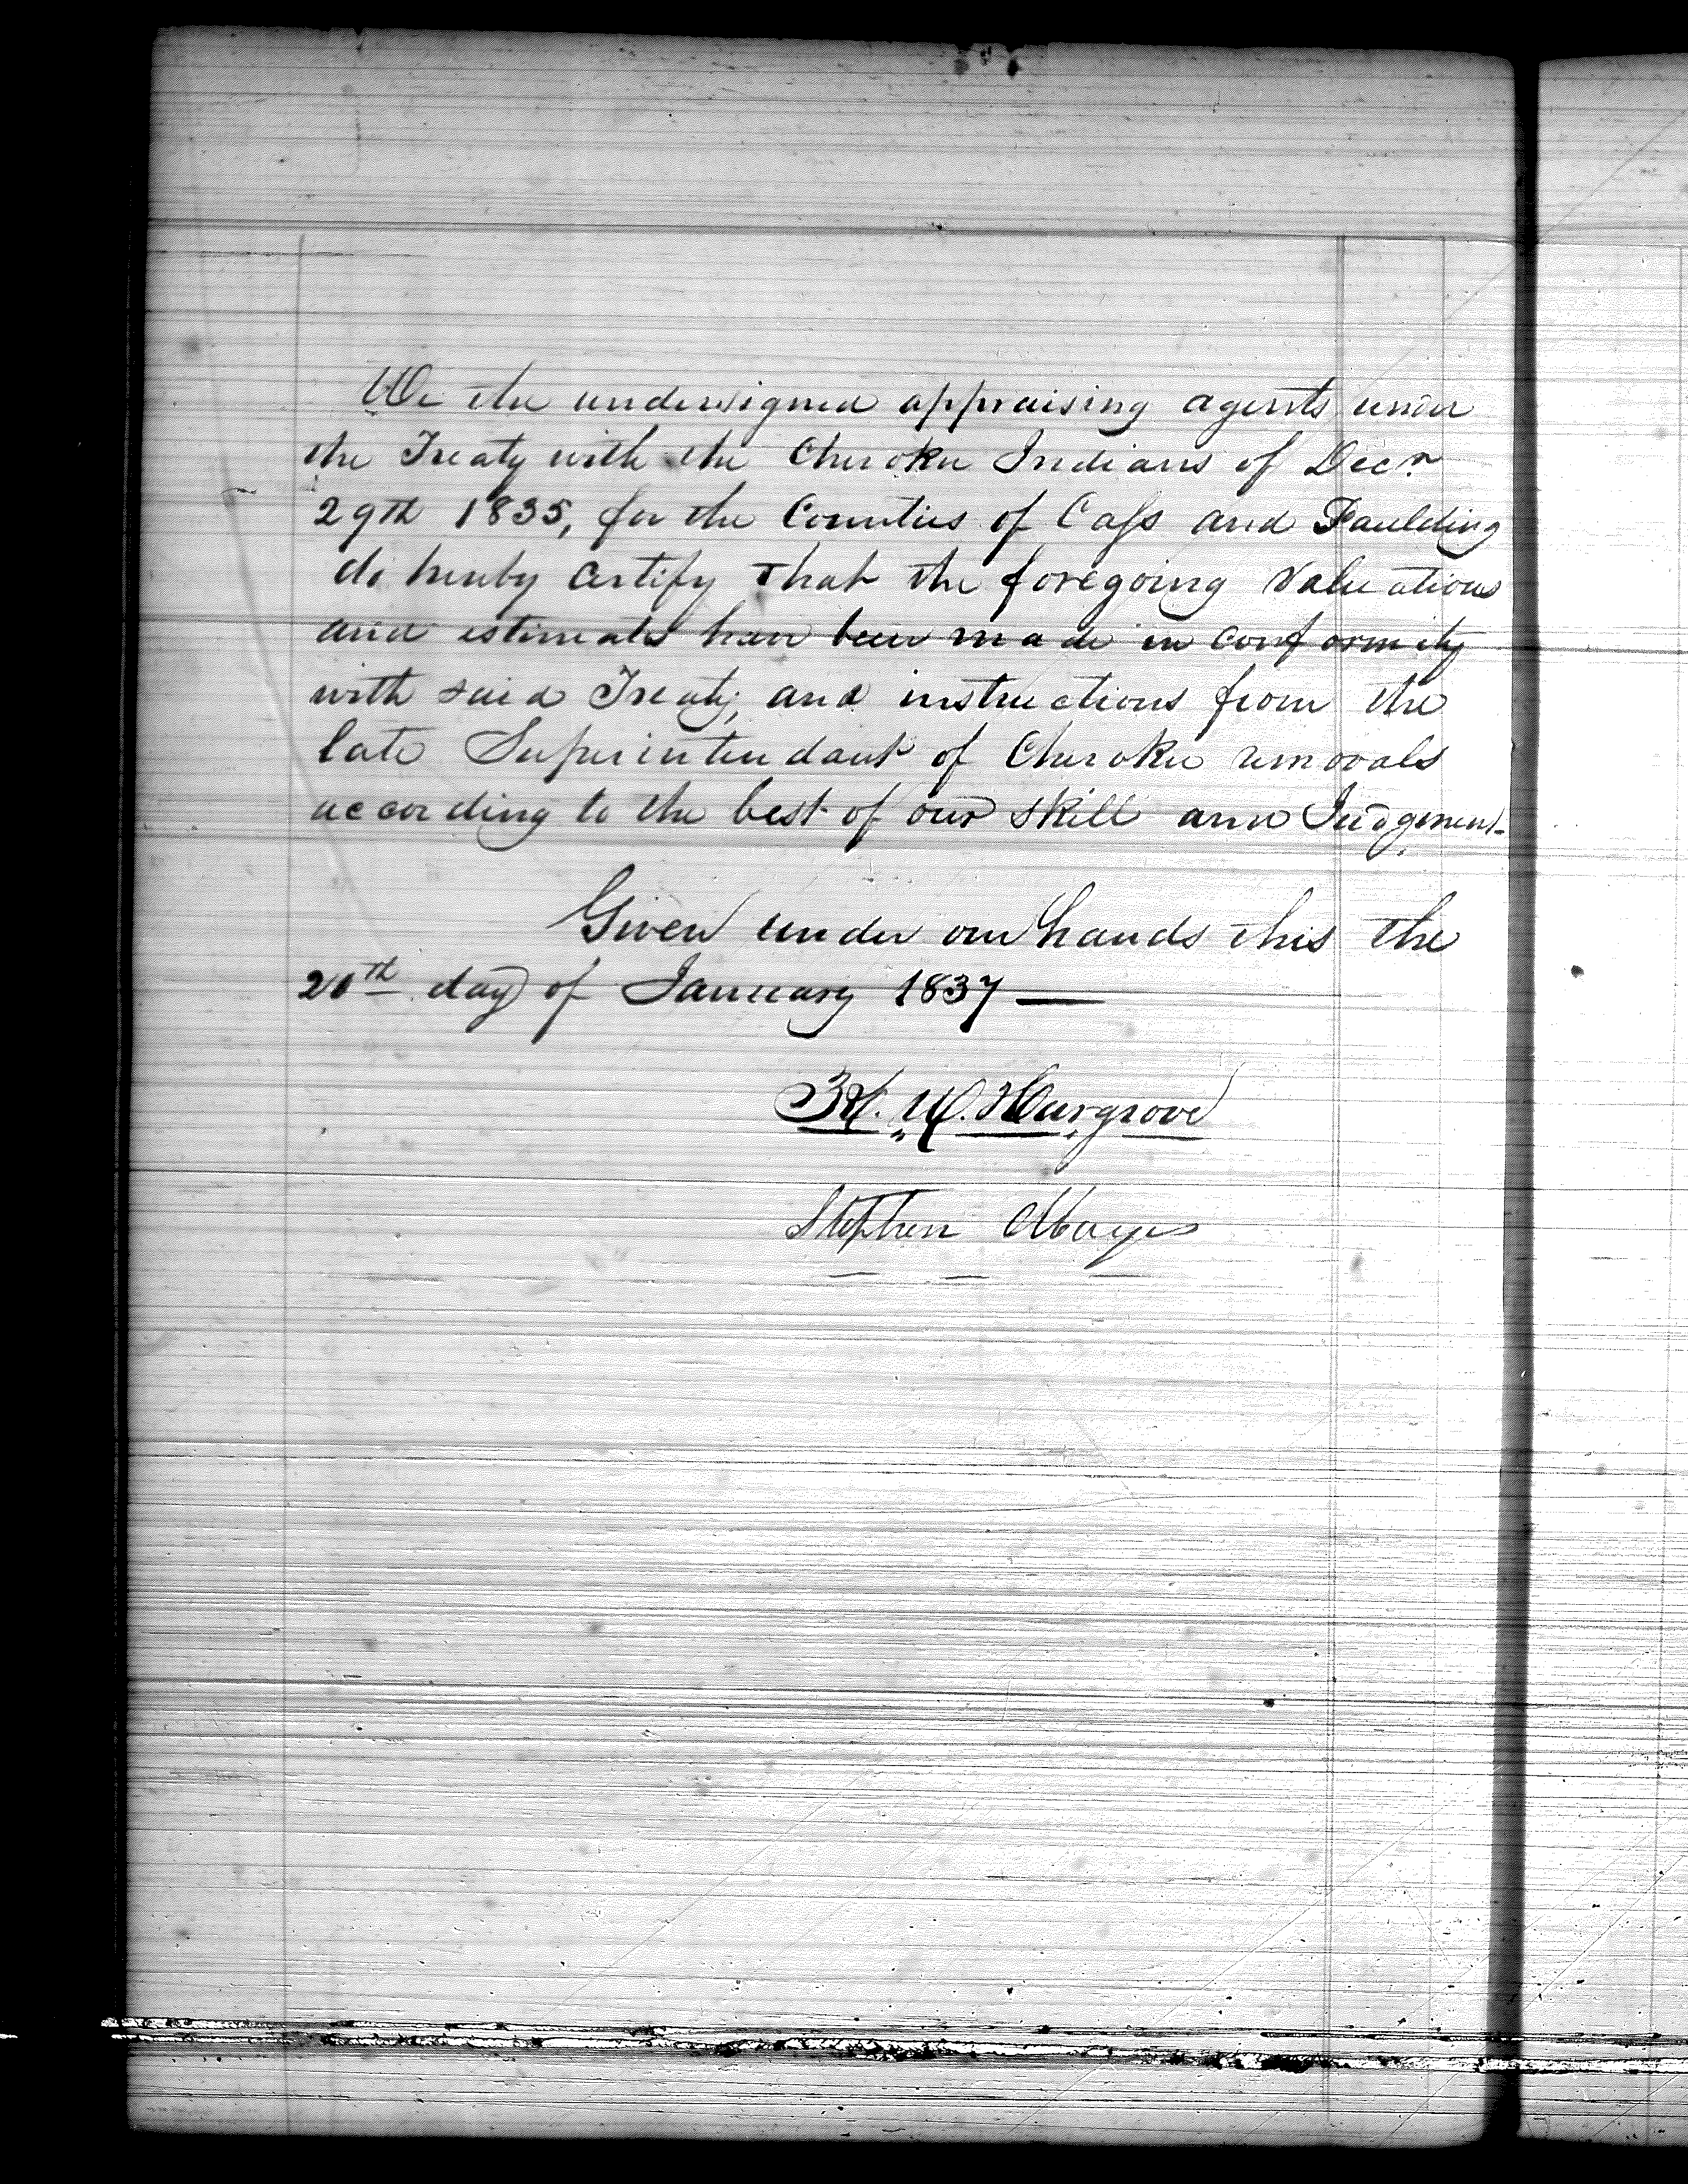 We the undersigned appraising agents under
the Treaty with the Cherokee Indians of Decr
29th 1835, for the Counties of Cass and Paulding
do hereby Certify that the foregoing Valuations
and estimates have been made in conformity
with said Treaty, and instructions from the
late Superintendant of Cherokee removals
according to the best of our skill and Judgement
Given under our hands this the
20th day of January 1837
W. Hargrove
Stephen Mayes